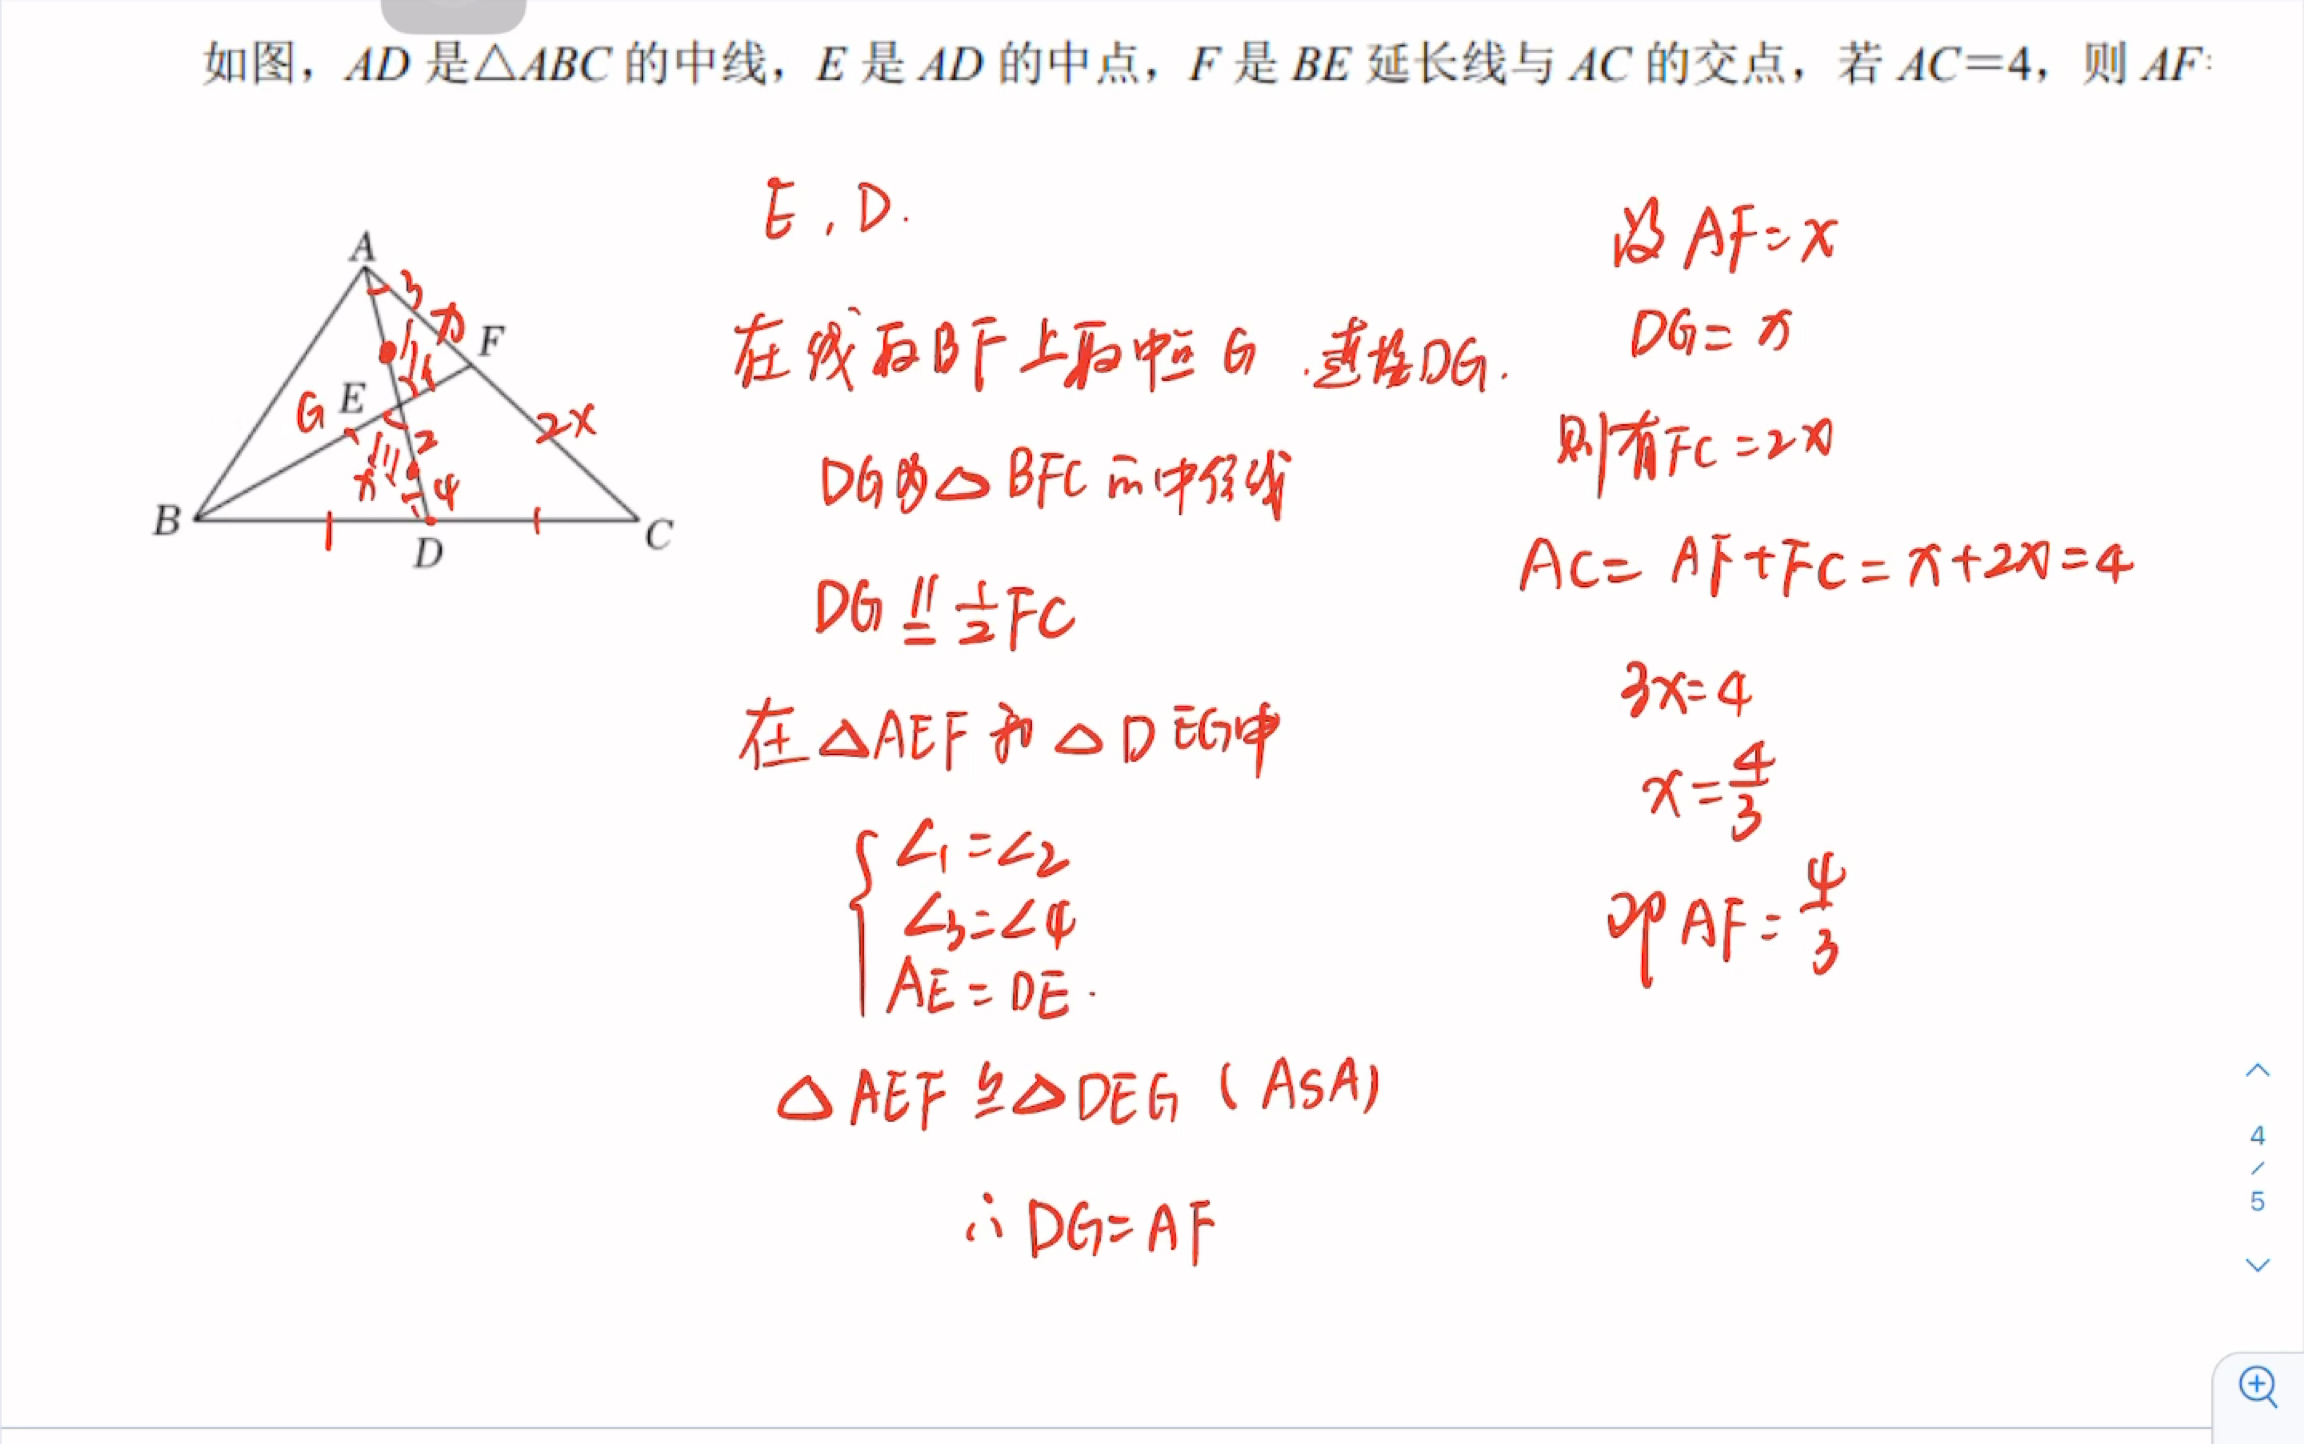 如图，AD 是△ABC 的中线，E 是 AD 的中点，F 是 BE 延长线与 AC 的交点，若 AC=4，则 AF:
A
3
x
F
1
G
E
2
2x
x
4
B
D
C
E，D.
在线段BF上取中点G.连接DG.
DG为△BFC的中位线
DG∥=½FC
在△AEF和△DEG中
∠1=∠2
∠3=∠4
AE=DE.
△AEF≌△DEG（ASA）
∴DG=AF
设AF=x
DG=x
则有FC=2x
AC=AF+FC=x+2x=4
3x=4
x=4/3
即AF=4/3
4
/
5